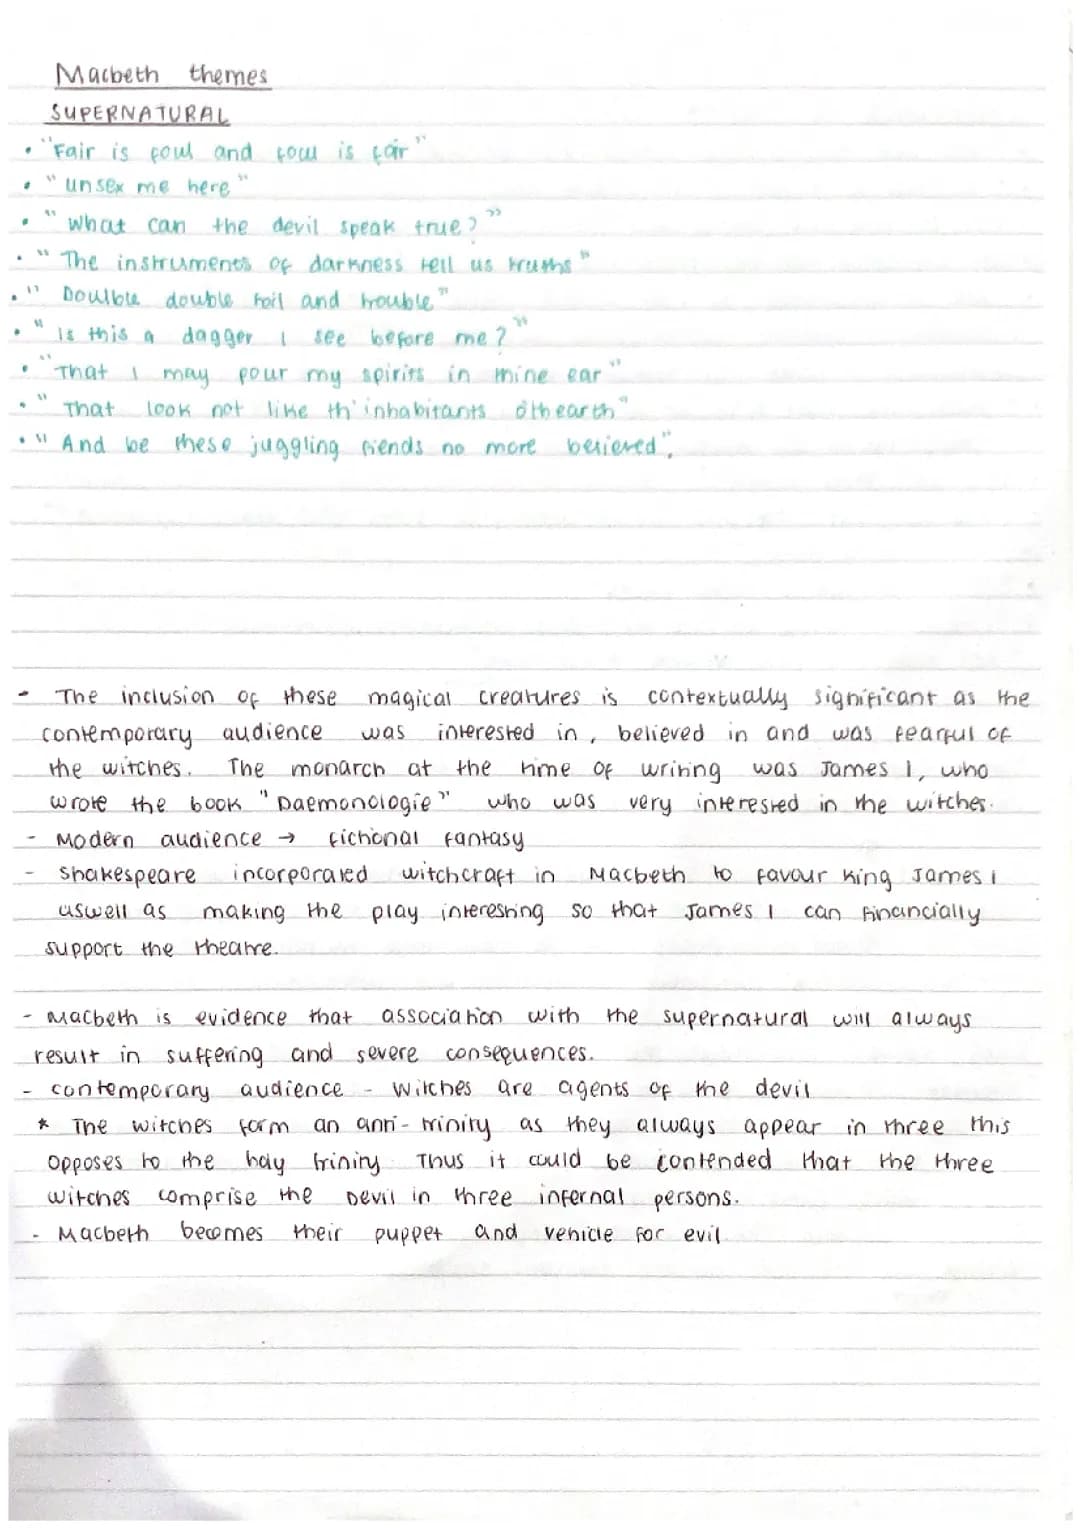 Macbeth themes
SUPERNATURAL
• "Fair is foul and foul is fair"
• "unsex me here"
• "What can the devil speak true?"
• "The instruments of darkness tell us truths"
• "Doulble double toil and trouble"
• "Is this a dagger I see before me?"
• "That I may pour my spirits in thine ear"
• "That look not like th'inhabitants o'th earth"
• "And be these juggling fiends no more believed".
- The inclusion of these magical creatures is contextually significant as the
contemporary audience was interested in, believed in and was fearful of
the witches. The monarch at the time of writing was James I, who
wrote the book "Daemonologie" who was very interested in the witches.
- Modern audience → fictional fantasy
- Shakespeare incorporated witchcraft in Macbeth to favour King James I
aswell as making the play interesting so that James I can financially
support the theatre.
- Macbeth is evidence that association with the supernatural will always
result in suffering and severe consequences.
- contemporary audience - witches are agents of the devil
* The witches form an anti-trinity as they always appear in three this
opposes to the holy trinity. Thus it could be contended that the three
witches comprise the Devil in three infernal persons.
- Macbeth becomes their puppet and vehicle for evil